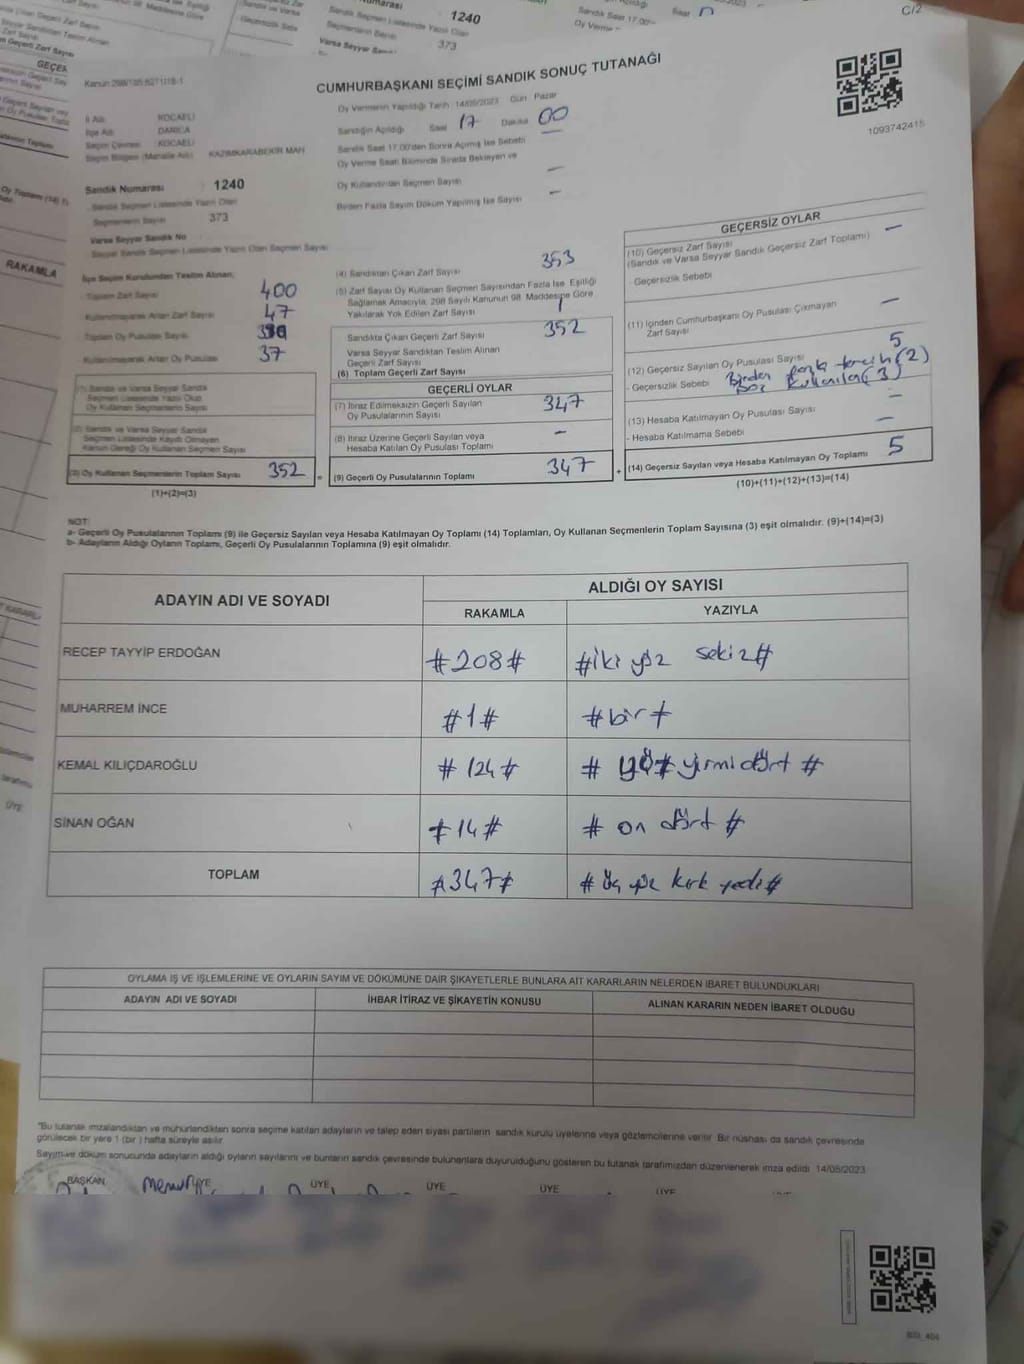 C/2
CUMHURBAŞKANI SEÇİMİ SANDIK SONUÇ TUTANAĞI
1093742415
Oy Vermenin Yapıldığı Tarih : 14/05/2023 Gün : Pazar
Sandığın Açıldığı Saat 17 Dakika 00
Sandık Saat 17:00'den Sonra Açılmış İse Sebebi —
Oy Verme Saati Bitiminde Sırada Bekleyen ve
Oy Kullandırılan Seçmen Sayısı —
Birden Fazla Sayım Döküm Yapılmış İse Sayısı —
İl Adı : KOCAELİ
İlçe Adı : DARICA
Seçim Çevresi : KOCAELİ
Seçim Bölgesi (Mahalle Adı) : KAZIMKARABEKİR MAH
Sandık Numarası : 1240
Sandık Seçmen Listesinde Yazılı Olan
Seçmenlerin Sayısı : 373
Varsa Seyyar Sandık No
Seyyar Sandık Seçmen Listesinde Yazılı Olan Seçmen Sayısı
İlçe Seçim Kurulundan Teslim Alınan;
Toplam Zarf Sayısı 400
Kullanılmayarak Artan Zarf Sayısı 47
Toplam Oy Pusulası Sayısı
Kullanılmayarak Artan Oy Pusulası 37
(1) Sandık ve Varsa Seyyar Sandık
Seçmen Listesinde Yazılı Olup
Oy Kullanan Seçmenlerin Sayısı
(2) Sandık ve Varsa Seyyar Sandık
Seçmen Listesinde Kayıtlı Olmayan
Kanun Gereği Oy Kullanan Seçmen Sayısı
(3) Oy Kullanan Seçmenlerin Toplam Sayısı 352
(1)+(2)=(3)
(4) Sandıktan Çıkan Zarf Sayısı 353
(5) Zarf Sayısı Oy Kullanan Seçmen Sayısından Fazla İse Eşitliği
Sağlamak Amacıyla, 298 Sayılı Kanunun 98. Maddesine Göre
Yakılarak Yok Edilen Zarf Sayısı 1
Sandıkta Çıkan Geçerli Zarf Sayısı 352
Varsa Seyyar Sandıktan Teslim Alınan
Geçerli Zarf Sayısı
(6) Toplam Geçerli Zarf Sayısı
GEÇERLİ OYLAR
(7) İtiraz Edilmeksizin Geçerli Sayılan
Oy Pusulalarının Sayısı 347
(8) İtiraz Üzerine Geçerli Sayılan veya
Hesaba Katılan Oy Pusulası Toplamı —
(9) Geçerli Oy Pusulalarının Toplamı 347
GEÇERSİZ OYLAR
(10) Geçersiz Zarf Sayısı —
(Sandık ve Varsa Seyyar Sandık Geçersiz Zarf Toplamı)
- Geçersizlik Sebebi
(11) İçinden Cumhurbaşkanı Oy Pusulası Çıkmayan
Zarf Sayısı —
(12) Geçersiz Sayılan Oy Pusulası Sayısı 5
- Geçersizlik Sebebi Birden fazla tercih (2)
Boş kullanılan (3)
(13) Hesaba Katılmayan Oy Pusulası Sayısı —
- Hesaba Katılmama Sebebi —
(14) Geçersiz Sayılan veya Hesaba Katılmayan Oy Toplamı 5
(10)+(11)+(12)+(13)=(14)
NOT:
a- Geçerli Oy Pusulalarının Toplamı (9) ile Geçersiz Sayılan veya Hesaba Katılmayan Oy Toplamı (14) Toplamları, Oy Kullanan Seçmenlerin Toplam Sayısına (3) eşit olmalıdır. (9)+(14)=(3)
b- Adayların Aldığı Oyların Toplamı, Geçerli Oy Pusulalarının Toplamına (9) eşit olmalıdır.
ADAYIN ADI VE SOYADI ALDIĞI OY SAYISI
RAKAMLA YAZIYLA
RECEP TAYYİP ERDOĞAN #208# #iki yüz sekiz#
MUHARREM İNCE #1# #bir#
KEMAL KILIÇDAROĞLU #124# # yüz yirmi dört #
SİNAN OĞAN #14# # on dört #
TOPLAM #347# # üç yüz kırk yedi#
OYLAMA İŞ VE İŞLEMLERİNE VE OYLARIN SAYIM VE DÖKÜMÜNE DAİR ŞİKAYETLERLE BUNLARA AİT KARARLARIN NELERDEN İBARET BULUNDUKLARI
ADAYIN ADI VE SOYADI İHBAR İTİRAZ VE ŞİKAYETİN KONUSU ALINAN KARARIN NEDEN İBARET OLDUĞU
"Bu tutanak imzalandıktan ve mühürlendikten sonra seçime katılan adayların ve talep eden siyasi partilerin sandık kurulu üyelerine veya gözlemcilerine verilir. Bir nüshası da sandık çevresinde
görülecek bir yere 1 (bir ) hafta süreyle asılır.
Sayım ve döküm sonucunda adayların aldığı oyların sayılarını ve bunların sandık çevresinde bulunanlara duyurulduğunu gösteren bu tutanak tarafımızdan düzenlenerek imza edildi. 14/05/2023
BAŞKAN ÜYE ÜYE ÜYE ÜYE ÜYE